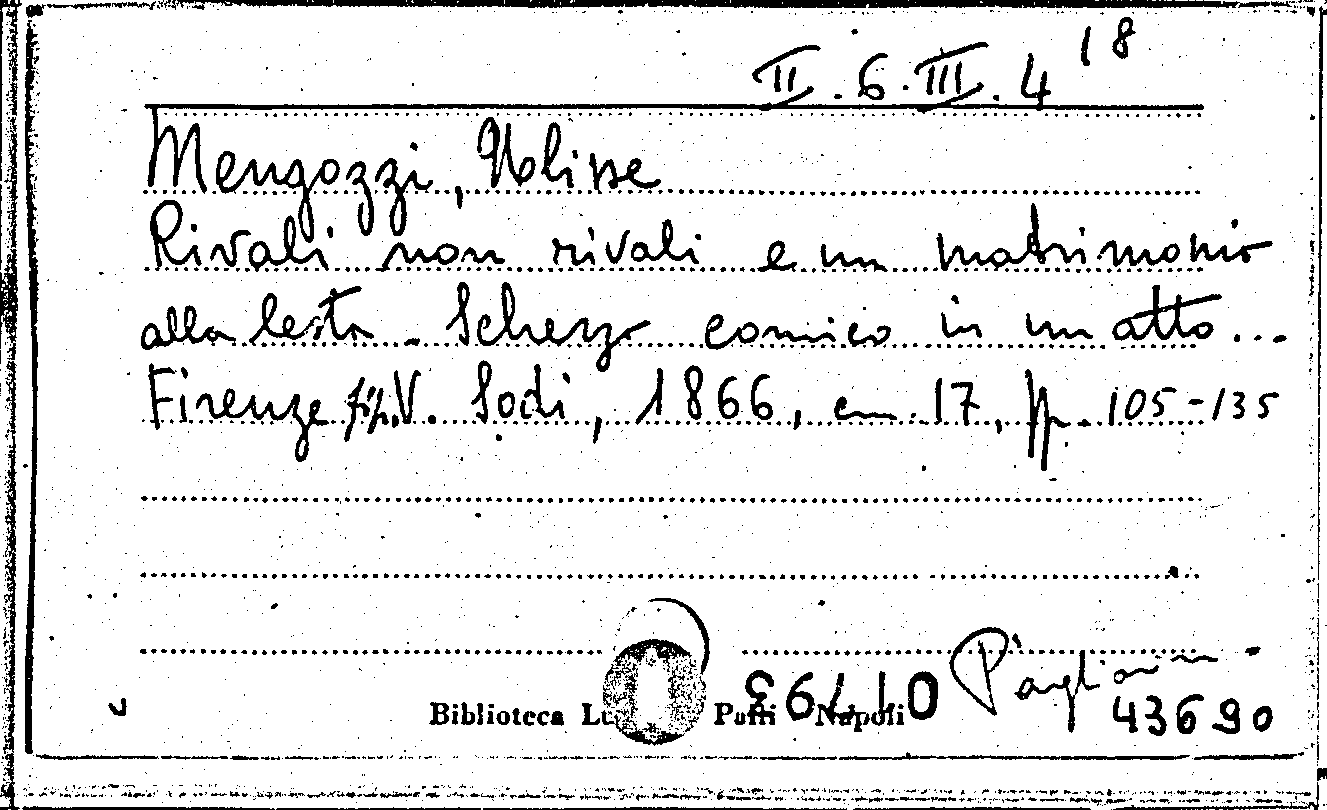 II. 6. III. 4 18
Mengozzi, Ulisse
Rivali non rivali e un matrimonio
alla lesta. Scherzo comico in un atto...
Firenze, tip. V. Sodi, 1866, cm. 17, pp. 105-135
Biblioteca Napoli
43690